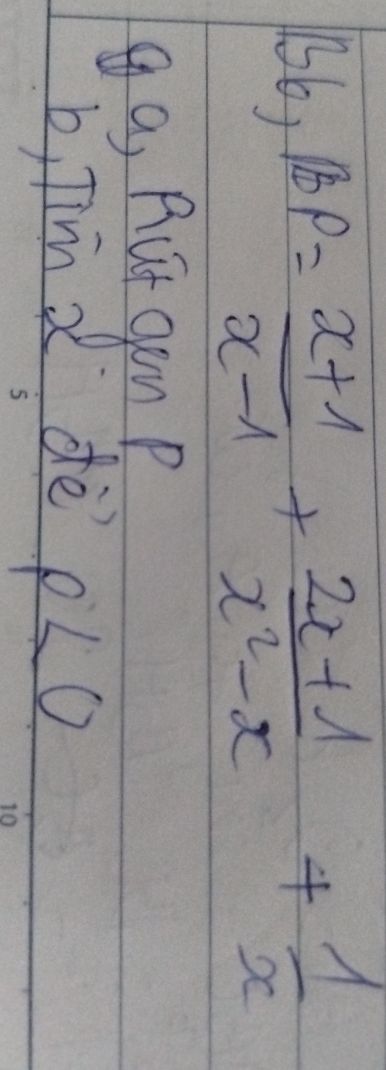 B6, P = \frac{x+1}{x-1} + \frac{2x+1}{x^2-x} + \frac{1}{x}
a, Rút gọn P
b, Tìm x để P < 0
5 10